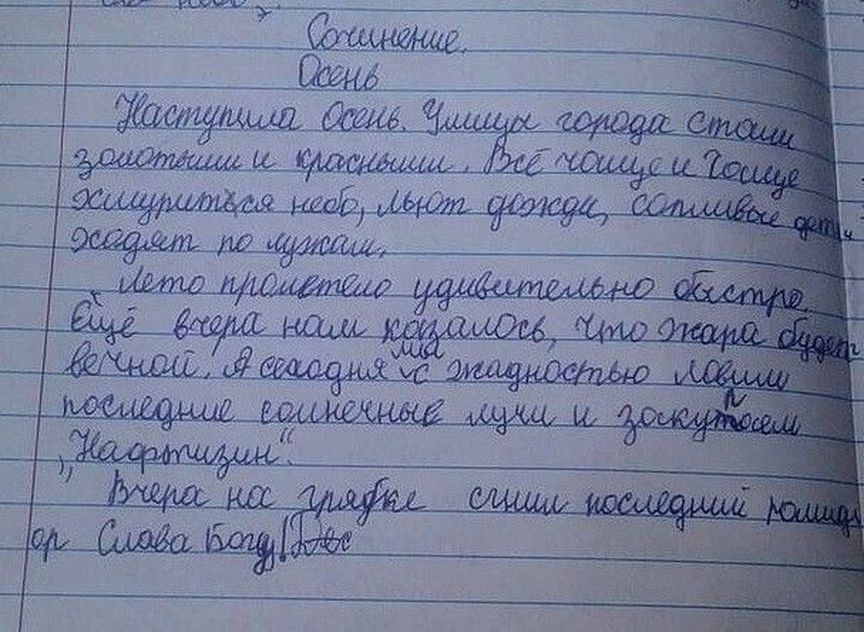 Сочинение.
Осень
Наступила Осень. Улицы города стали
золотыми и красными. Всё чаще и чаще
хмуриться небо, льют дожди, сопливые дети
ходят по лужам.
Лето пролетело удивительно быстро.
Ещё вчера нам казалось, что жара будет
вечной. А сегодня мы с жадностью ловим
последние солнечные лучи и закупоем
"Нафтизин".
Вчера на грядке сгнил последний помид
ор Слава Богу!